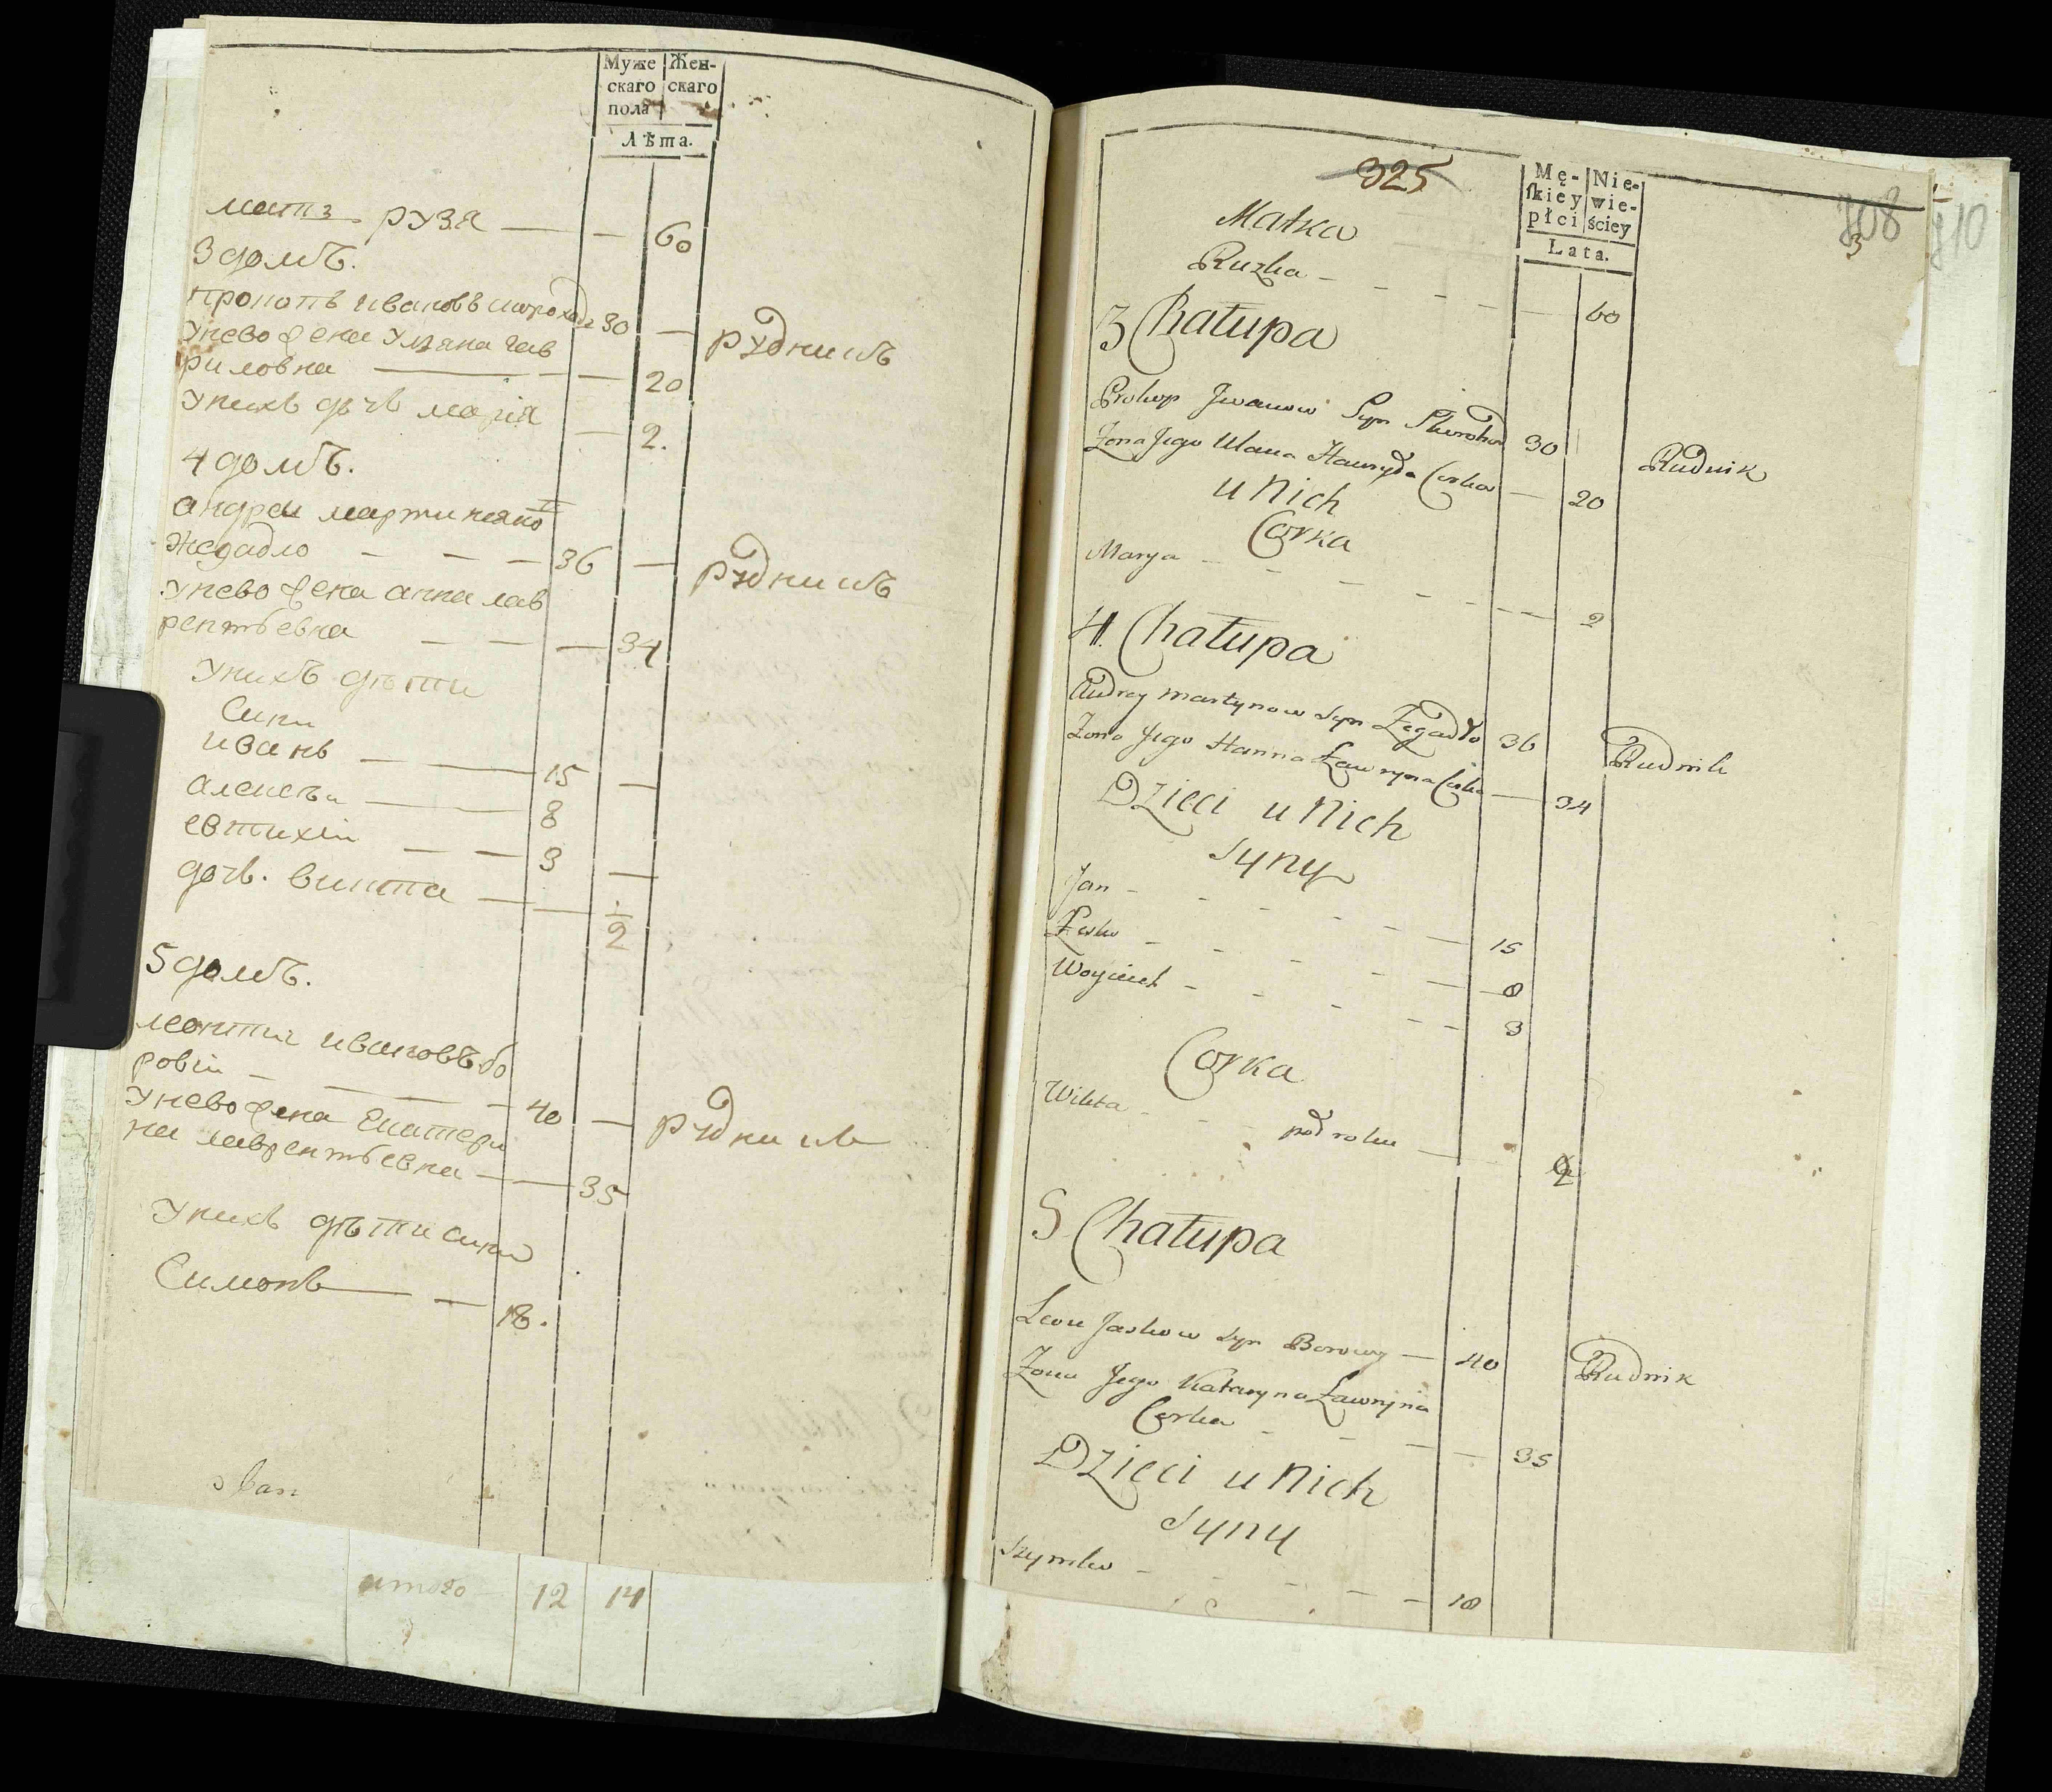 Муже Жен-
скаго скаго
пола
Лѣта.
мать рузя — — 60
3 домъ.
прокопъ ивановъ скороход 30 — рудникъ
унево жена Уляна гав
риловна — — 20
унихъ дочь марія — 2.
4 домъ.
андреи мартиняко
жегадло — — — 36 — рудникъ
унево жена анна лав
рентьевна — — — 34
унихъ дѣти
Сини
иванъ — — 15 —
алексѣи — 8
евтихіи — — 3 —
дочь. викта — — 1/2
5 домъ.
леонтии ивановъ бо
ровіи — — — 40 — рудникъ
унево жена Екатери
на лаврентьевна — — 35
унихъ дѣти сини
Симонъ — — 18.
итого 12 14
325
Mę- Nie-
ſkiey wie-
płci ściey
Lata.
108
3
110
Matka
Ruzka — — — — — 60
3 Chałupa
Prokop Jwanow Syn Skorohod 30 Rudnik
Zona Jego Ulana Hawryła Corka — 20
u Nich
Corka
Marya — — — — — 2
4. Chałupa
Andrey martynow syn Zegadło 36 Rudnik
Zona Jego Hanna Ławryna Corka — 34
Dzieci u Nich
synÿ
Jan — — — — — 15
Łesko — — — — — 8
Woyciech — — — — — 3
Corka
Wikta — — — pod rokiem — 1/2
5 Chałupa
Leon Jaskow syn Borowy — 40 Rudnik
Zona Jego Katarzyna Ławryna
Corka — — — 35
Dzieci u Nich
syny
Szymko — — — — — 18